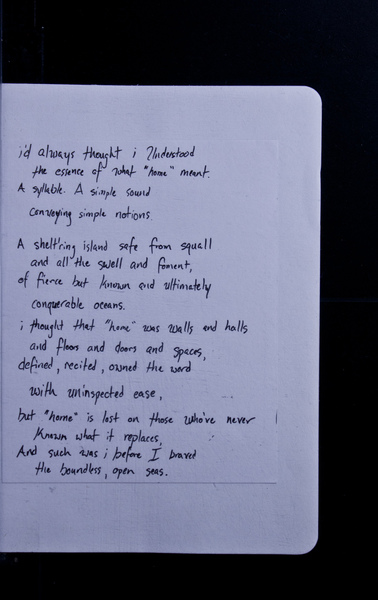 i'd always thought i Understood
the essence of what "home" meant.
A syllable. A simple sound
conveying simple notions.
A shelt'ring island safe from squall
and all the swell and foment,
of fierce but known and ultimately
conquerable oceans.
i thought that "home" was walls and halls
and floors and doors and spaces,
defined, recited, owned the word
with uninspected ease,
but "home" is lost on those who've never
known what it replaces,
And such was i before I braved
the boundless, open seas.